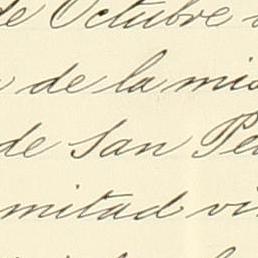 de Octubre
de la mis
de San Pe
mitad vi